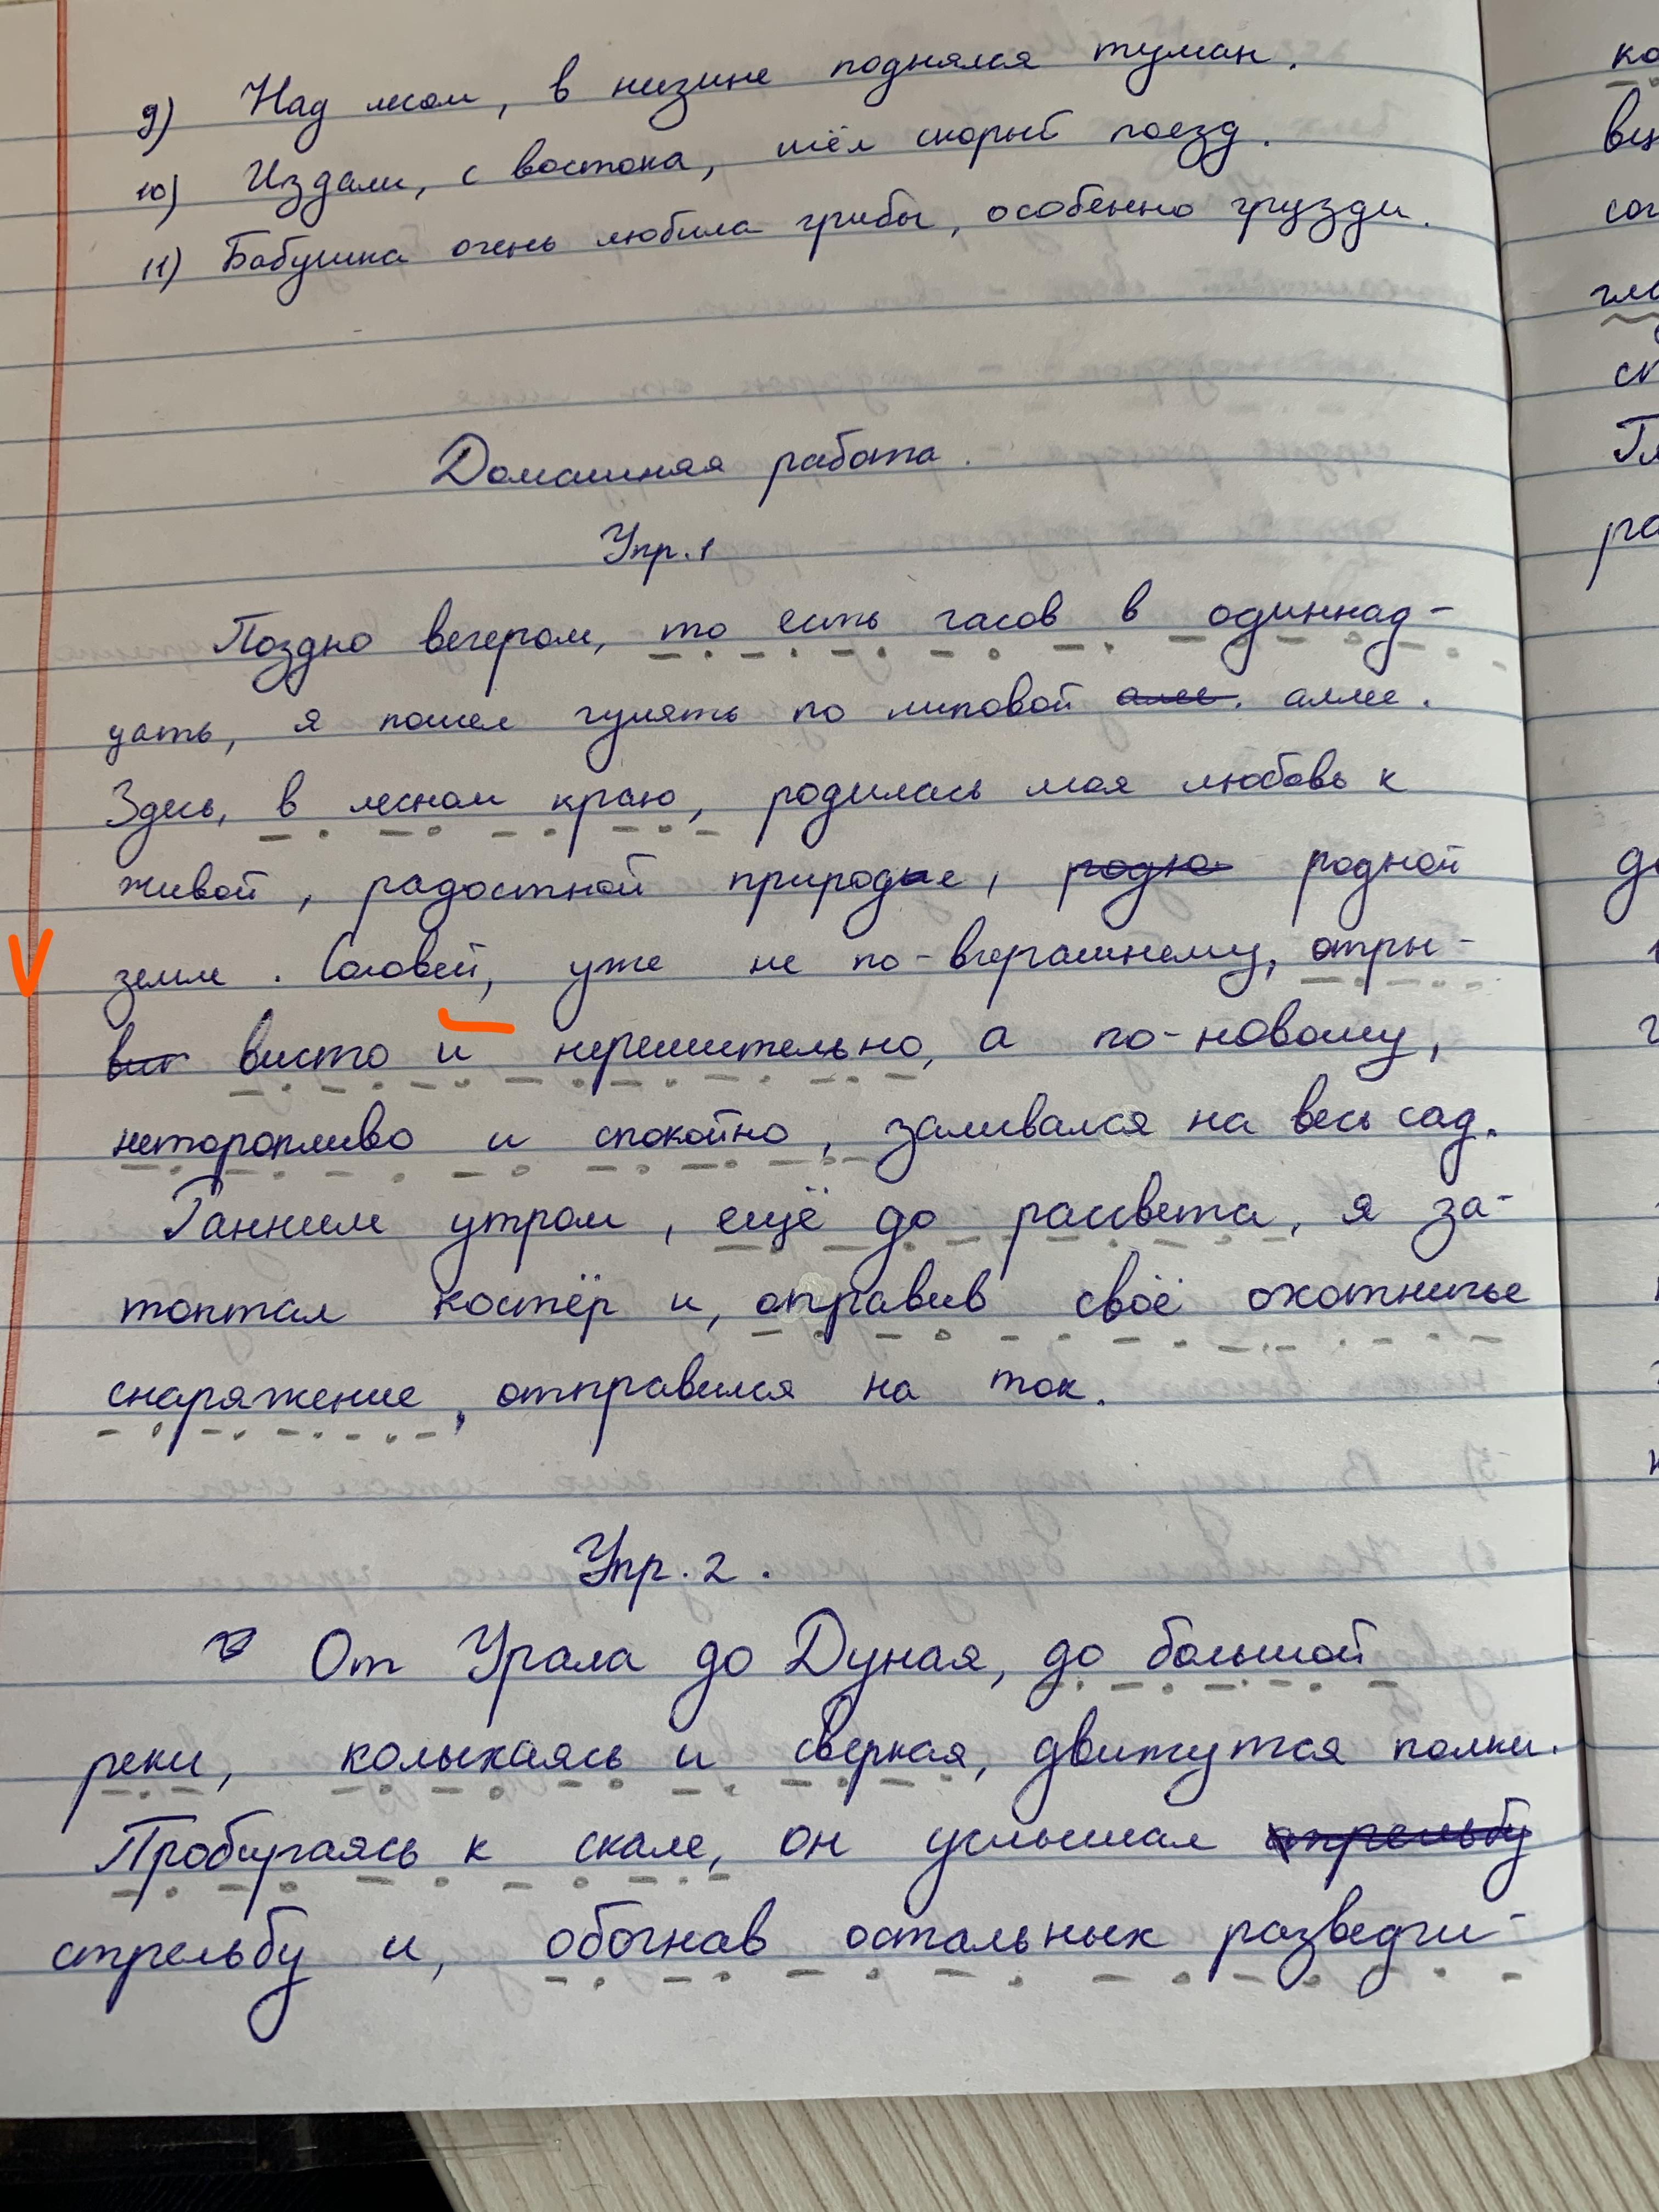 9) Над лесом, в низине поднялся туман.
10) Издали, с востока, шёл скорый поезд.
11) Бабушка очень любила грибы, особенно грузди.
Домашняя работа.
Упр. 1
Поздно вечером, то есть часов в одиннад-
цать, я пошел гулять по липовой аллее.
Здесь, в лесном краю, родилась моя любовь к
живой, радостной природе, родной
земле. Соловей, уже не по-вчерашнему, отры-
висто и нерешительно, а по-новому,
неторопливо и спокойно, заливался на весь сад.
Ранним утром, ещё до рассвета, я за-
топтал костёр и, оправив своё охотничье
снаряжение, отправился на ток.
Упр. 2.
От Урала до Дуная, до большой
реки, колыхаясь и сверкая, движутся полки.
Пробираясь к скале, он услышал
стрельбу и, обогнав остальных разведчи-